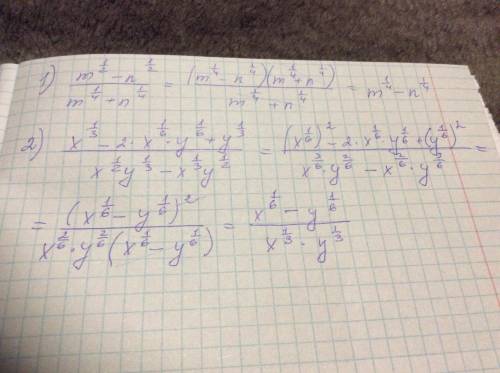 1) (m^{1/2} - n^{1/2})/(m^{1/4} + n^{1/4}) = ((m^{1/4} - n^{1/4})(m^{1/4} + n^{1/4}))/(m^{1/4} + n^{1/4}) = m^{1/4} - n^{1/4}
2) (x^{1/3} - 2 · x^{1/6} · y^{1/6} + y^{1/3})/(x^{1/2} y^{1/3} - x^{1/3} y^{1/2}) = ((x^{1/6})^2 - 2 · x^{1/6} y^{1/6} + (y^{1/6})^2)/(x^{3/6} · y^{2/6} - x^{2/6} · y^{3/6}) =
= (x^{1/6} - y^{1/6})^2/(x^{2/6} · y^{2/6} (x^{1/6} - y^{1/6})) = (x^{1/6} - y^{1/6})/(x^{1/3} · y^{1/3})